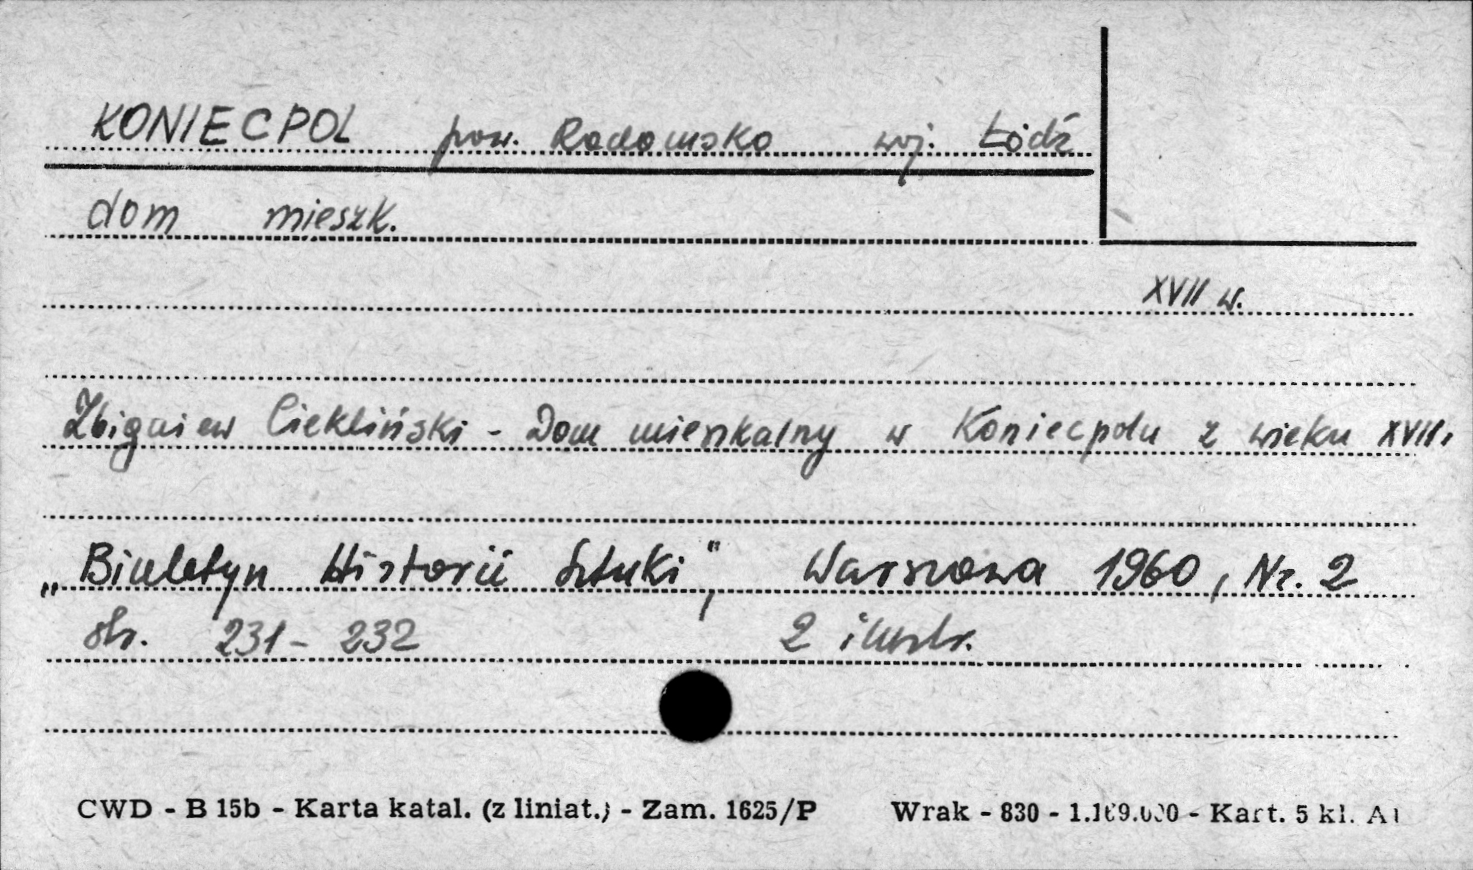 KONIECPOL pow. Radomsko woj. Łódź
dom mieszk.
XVII w.
Zbigniew Ciekliński - Dom mieszkalny w Koniecpolu z wieku XVII.
„Biuletyn Historii Sztuki", Warszawa 1960, Nr. 2
str. 231 - 232 2 ilustr.
CWD - B 15b - Karta katal. (z liniat.) - Zam. 1625/P Wrak - 830 - Kart. 5 kl. A1